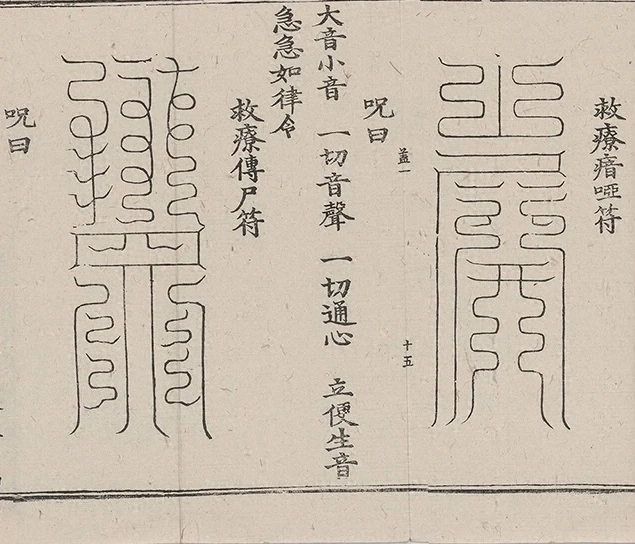 救療瘖啞符
呪曰
蓋一
十五
大音小音 一切音聲 一切通心 立便生音
急急如律令
救療傳尸符
呪曰